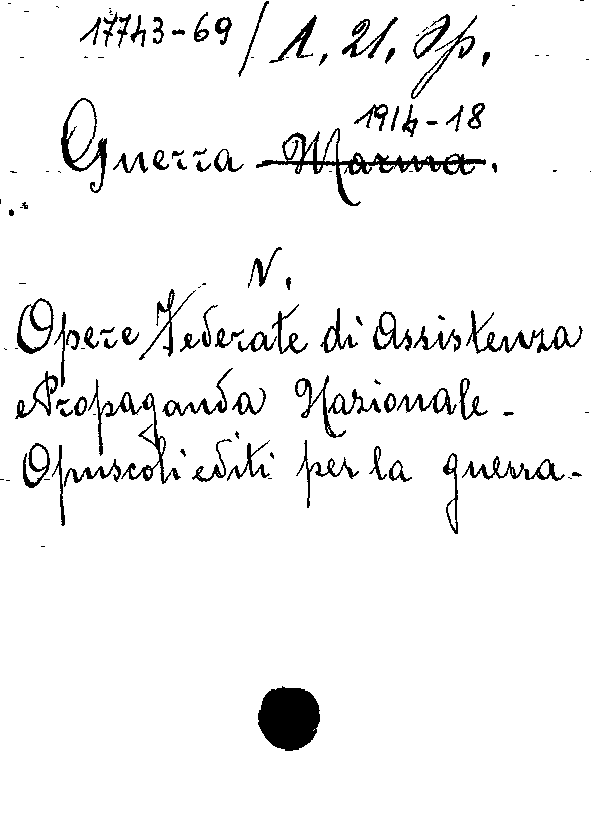 17743-69 / 1, 21, Op.
1914-18
Guerra Marina.
V.
Opere Federate di Assistenza
e Propaganda Nazionale -
Opuscoli editi per la guerra -